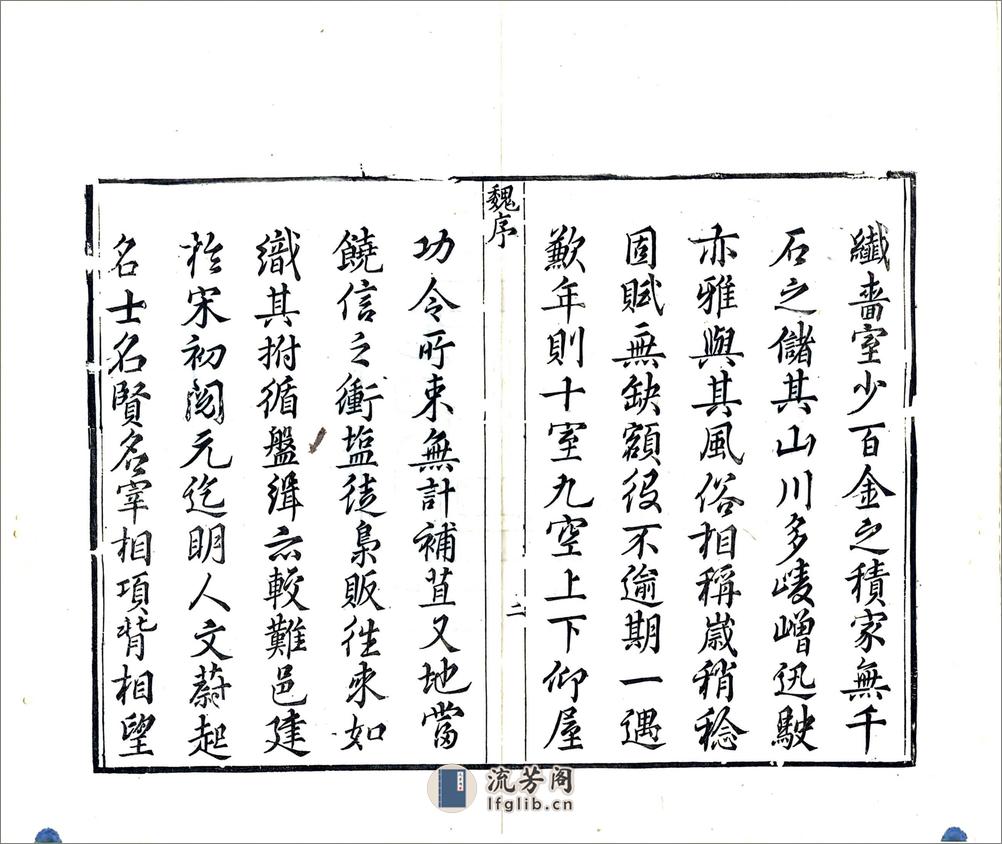 纖嗇室少百金之積家無千
石之儲其山川多崚嶒迅駛
亦雅與其風俗相稱歲稍稔
固賦無缺額役不逾期一遇
歉年則十室九空上下仰屋
魏序
二
功令所束無計補苴又地當
饒信之衝塩徒梟販徃來如
織其拊循盤緝亦較難邑建
於宋初閱元迄明人文蔚起
名士名賢名宰相項背相望
流芳阁
lfglib.cn